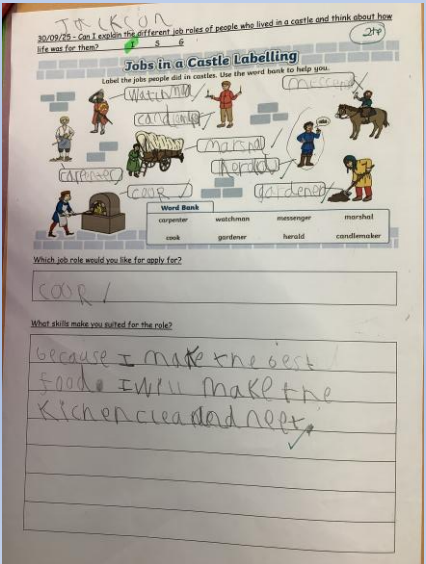 Jackson
30/09/25 - Can I explain the different job roles of people who lived in a castle and think about how
life was for them? I S G
Jobs in a Castle Labelling
Label the jobs people did in castles. Use the word bank to help you.
watchma
messenger
candlemake
marshal
herald
carpenter
cook
gardener
Word Bank
carpenter watchman messenger marshal
cook gardener herald candlemaker
Which job role would you like for apply for?
cook
What skills make you suited for the role?
because I make the best
food. I will make the
kichen clean and neet.